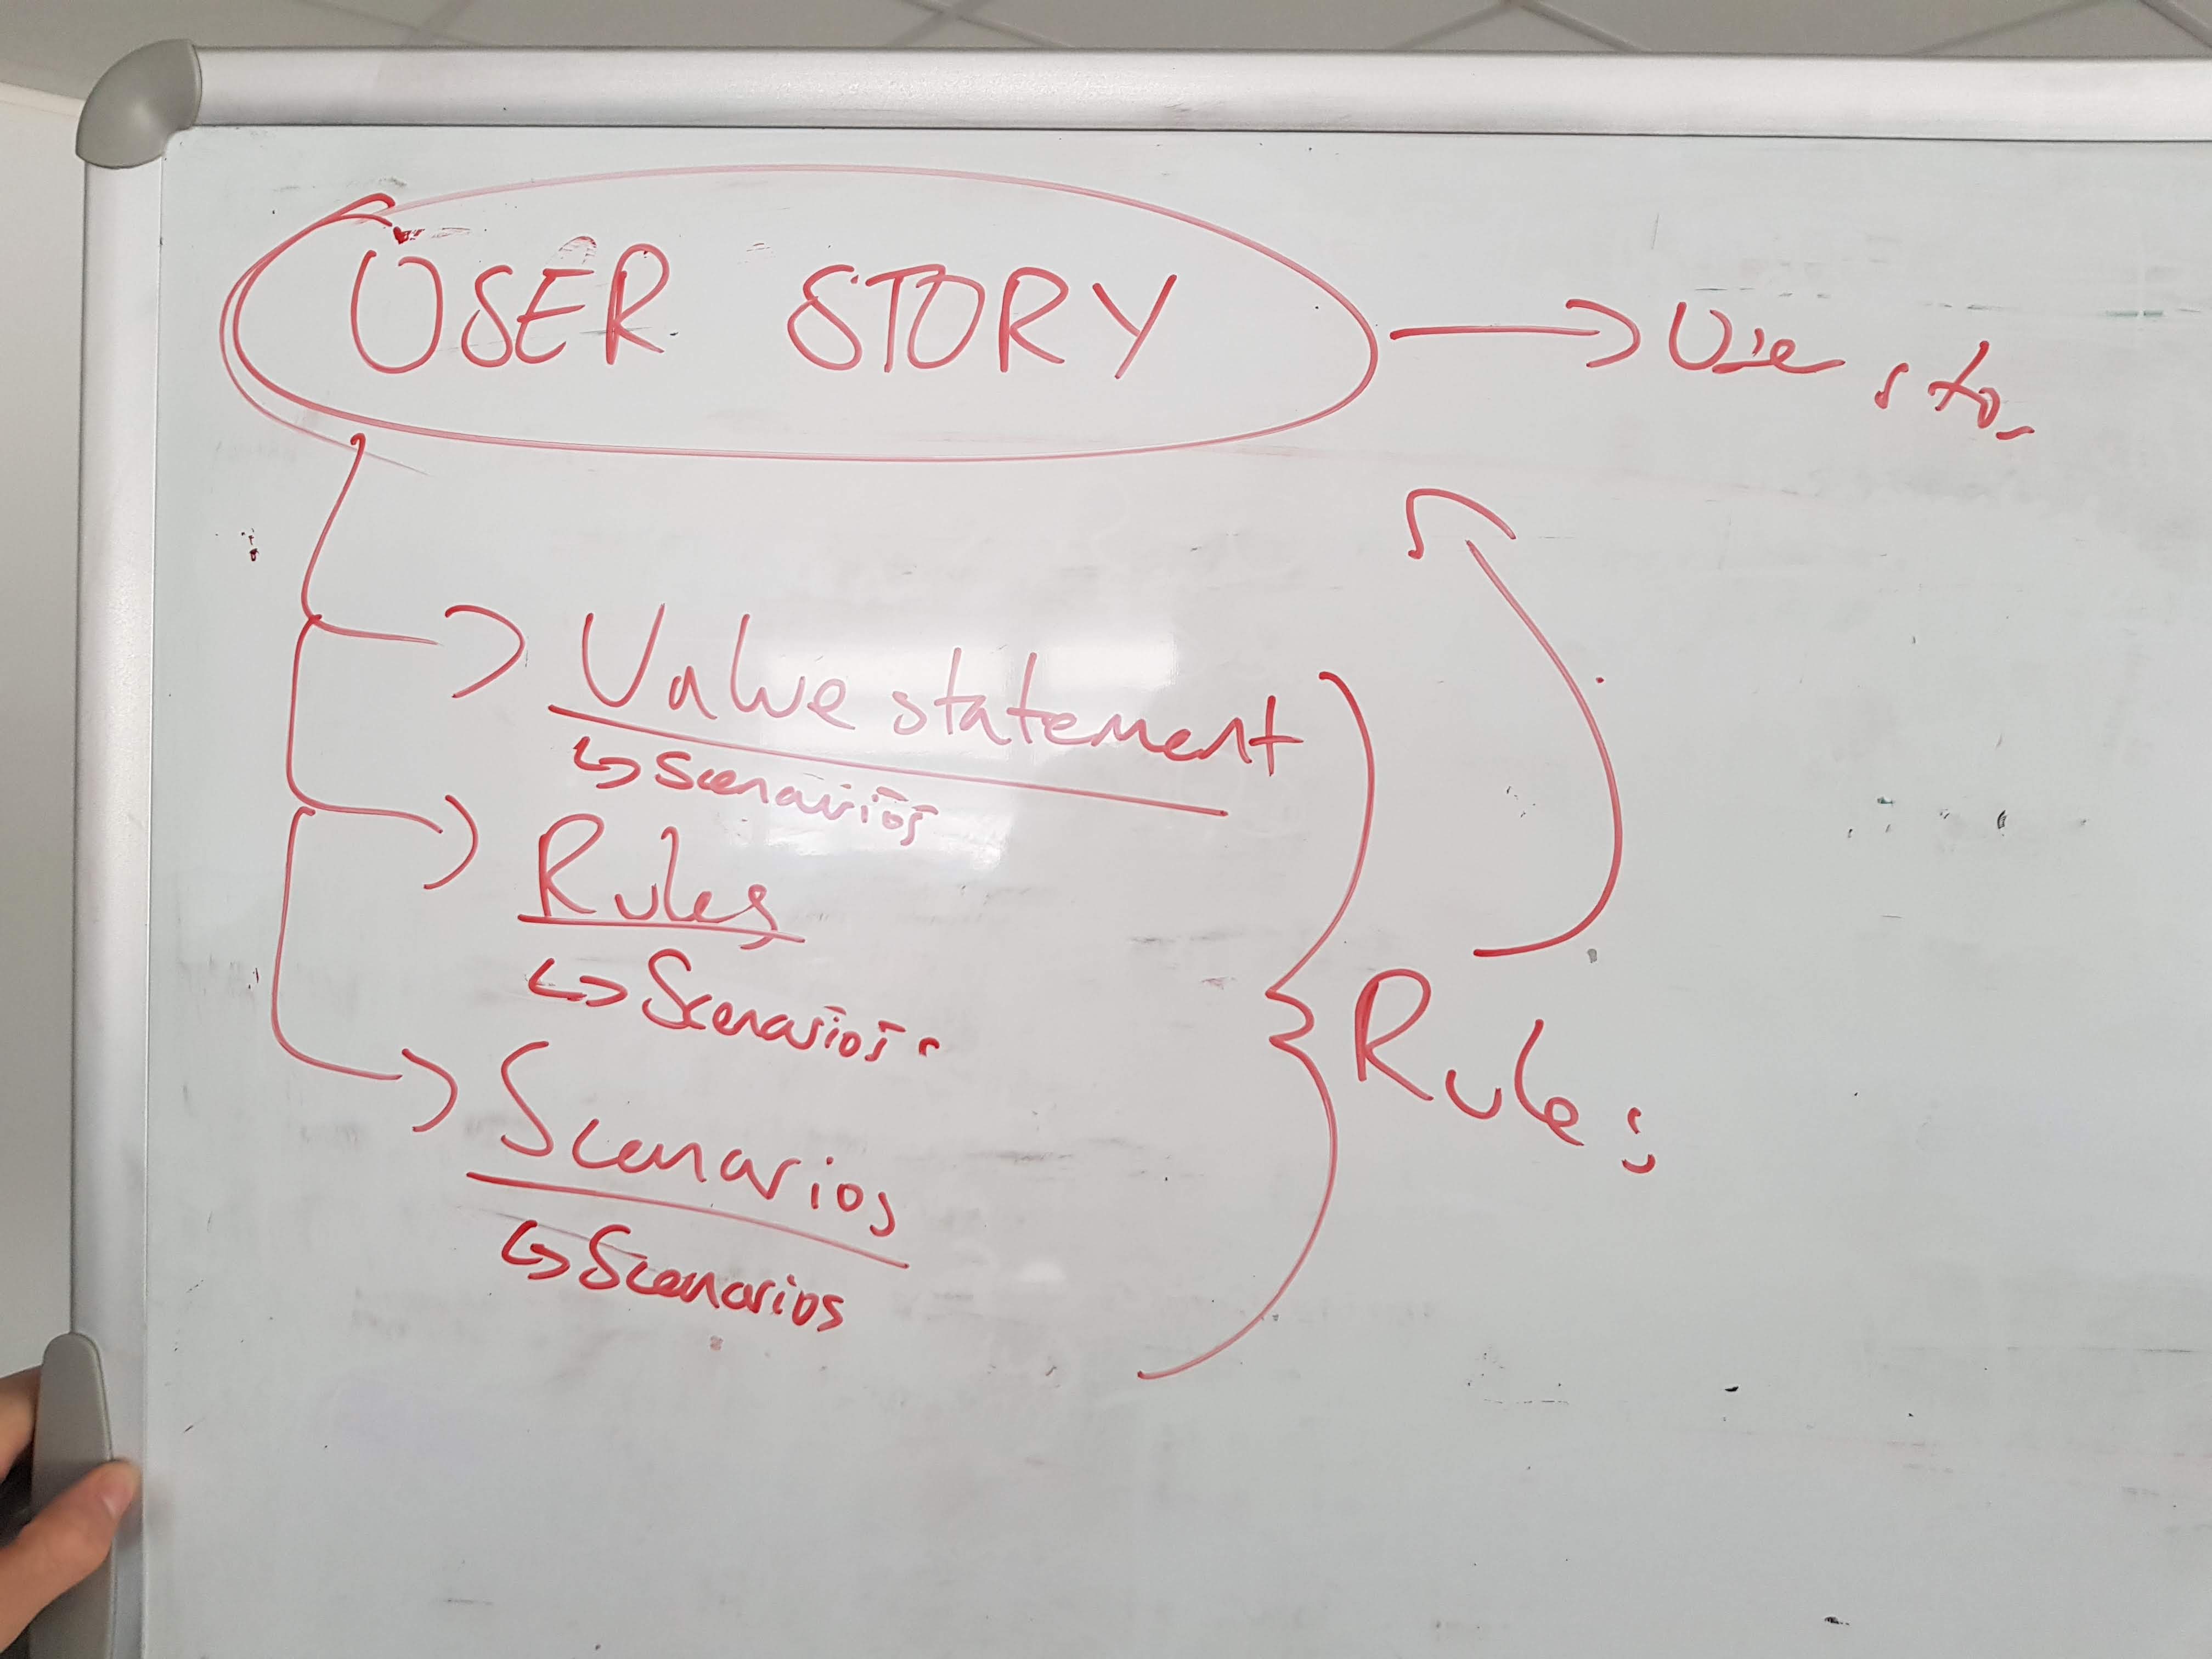 USER STORY
Value statement
Scenarios
Rules
Scenarios
Scenarios
Scenarios
Rules